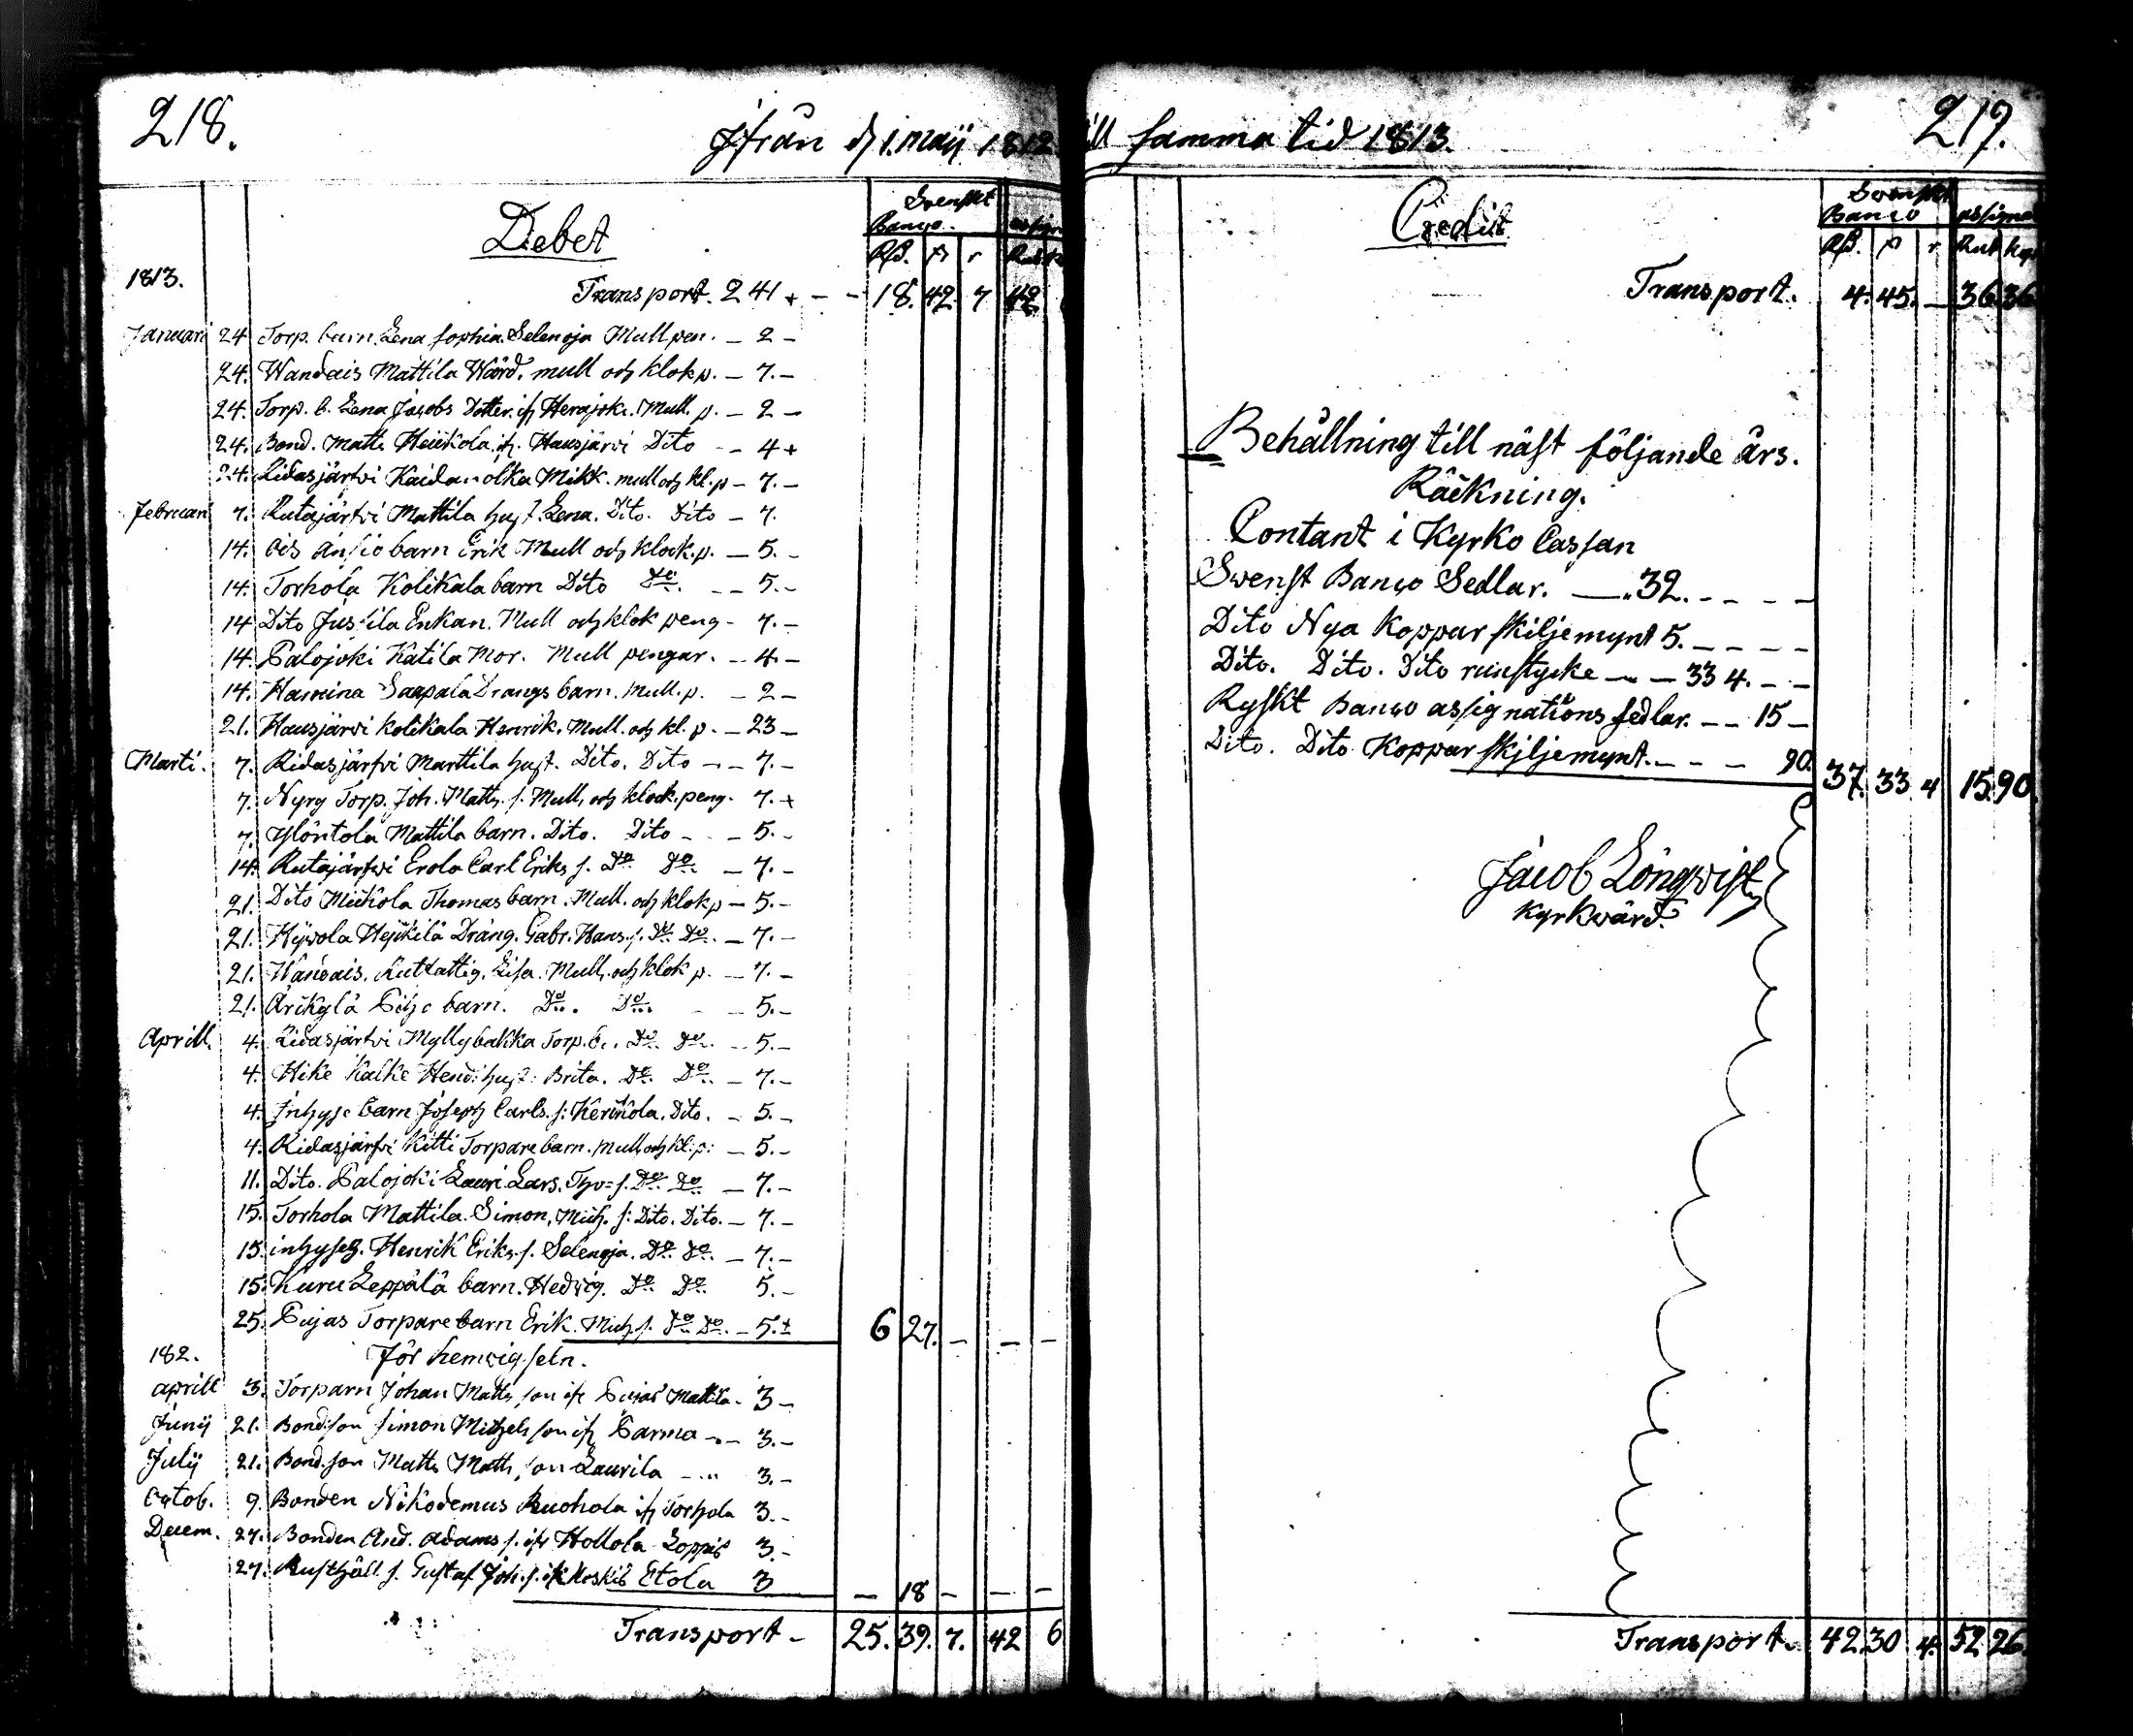 218.
Ifrån d 1. Maij 1812
Debet
Svenskt
Banco.
Rd. s r
1813.
Transport. 241 + - - 18. 42. 7 42
Januari 24 Torp. barn. Lena Sophia Selenoja Mull pen. - 2 -
24. Wandais Mattila Wärd. mull och klok p. - 7. -
24. Torp. b. Lena Jacobs Dotter. ifr Herajoki. Mull. p. - 2 -
24. Bond. Matts Heikola ifr. Hausjärvi Dito - - 4 +
24. Ridasjärwi Kaidanolka Mikk. mull och kl. p - 7. -
Februari 7. Rutajärwi Mattila hust. Lena. Dito. Dito - 7.
14. Ois Ansio barn Erik Mull och klock. p. - 5. -
14. Torhola Kolikala barn Dito Do. - - 5. -
14 Dito Jussila Enkan. Mull och klok peng - 7. -
14. Palojoki Katila Mor. Mull pengar. - 4. -
14. Hamina Saapala Drangs barn. Mull. p. - 2 -
21. Hausjärwi Kolikala Henrik. Mull. och kl. p. - 23 -
Marti. 7. Ridasjärwi Marttila hust. Dito. Dito - - 7. -
7. Nyry Torp. Joh. Matts. s. Mull, och klock. peng. 7. +
7. Ylöntola Mattila barn. Dito. Dito - - - 5. -
14. Rutajärwi Erola Carl Eriks s. Do Do. - 7. -
21. Dito Mickola Thomas barn. Mull. och klok p - 5. -
21. Hyvola Heikilä Dräng. Gabr. Hans. s. Do. Do. - 7. -
21. Wandais. Lisa. Mull. och klok p. - 7. -
21. Arikylä barn. Do. Do. - - 5. -
Aprill. 4. Ridasjärwi Myllybakka Torp. b. Do. Do. - 5. -
4. Hike Kalke Hend. hust: Brita. Do. Do. - 7. -
4. Inhyse barn Joseph Carls. s: Kerikola. Dito. - 5. -
4. Ridasjärwi Kitti Torpare barn. Mull, och kl: p: - 5. -
11. Dito. Palojoki Lauri Lars. s. Do. Do. - 7. -
15. Torhola Mattila. Simon. Mich. s: Dito. Dito. - 7. -
15. inhyses. Henrik Eriks. s. Selenoja. Do. Do. - 7. -
15. Kuru Leppälä barn. Hedvig. Do Do. 5. -
25. Pujas Torpare barn Erik. Mich. s. Do Do. - 5. ± 6 27. - - -
182. För hemvigseln.
aprill 3. Torparn Johan Matts son ifr Pujas Mattila - 3 -
Junij 21. Bond. son Simon Michels son ifr Parma - . - 3. -
Julij 21. Bond. son Matts Matts son Laurila - . " 3. -
Octob. 9. Bonden Nikodemus Ruohola ifr Torhola 3. -
Decem. 27. Bonden And. Adams. s. ifr Hollola Loppis 3. -
27. Rusthåll. s. Gustaf Joh. s. ifr Koskis Etola 3 - 18 - - -
Transport - 25. 39. 7. 42 6
till samma tid 1813.
217.
Credit
Svenskt
Banco assigna
Rd. s r Rub kop
Transport. 4. 45. - 36 36
Behållning till näst följande års.
Räckning.
Contant i Kyrko Cassan
Swenst Banco Sedlar. -. 32. - - - -
Dito Nya koppar skiljemynt 5. - - - -
Dito. Dito. Dito runstycke - - 33 4. - -
Ryskt Banco assignations sedlar. - - 15 -
Dito. Dito Koppar skiljemynt. - - - 90. 37. 33. 4 15. 90.
Jacob Löngqvist
kyrkvärd.
Transport. 42. 30 4. 52 26.